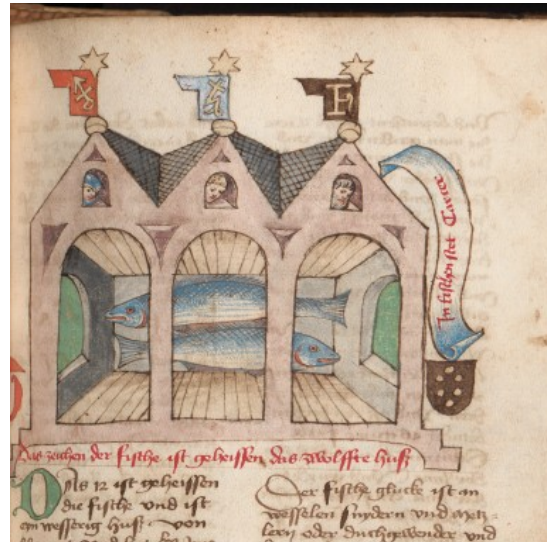 In fischen stet Carcer
Das zeichen der fische ist geheissen das zwolffte huß
Das 12 ist geheissen
die fische vnd ist
ein wesserig huß von
Der fische gluck ist an
wesselen snydern und metz-
lern oder duchgewender vnd